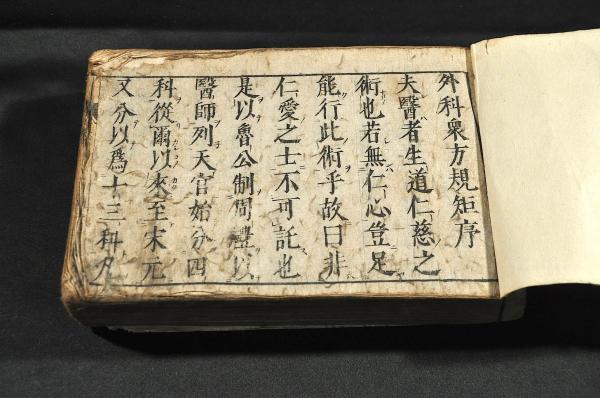 外科衆方規矩序
夫醫者生道仁慈之
術也若無仁心豈足
能行此術乎故曰非
仁愛之士不可託也
是以魯公制周禮以
醫師列天官始分四
科從爾以來至宋元
又分以爲十三科凡